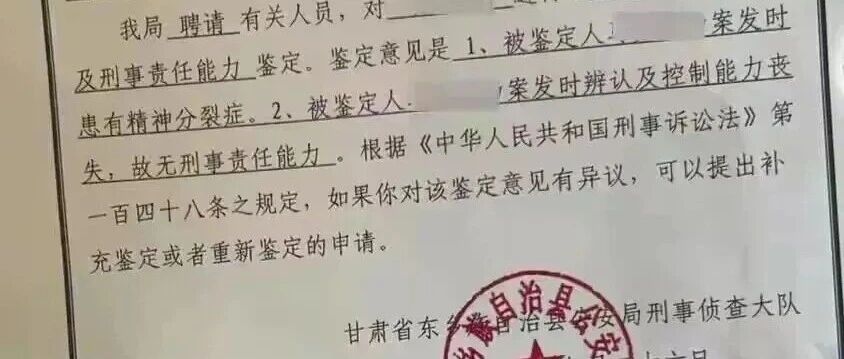 我局 聘请 有关人员，对
及刑事责任能力 鉴定。鉴定意见是 1、被鉴定人 案发时
患有精神分裂症。2、被鉴定人 案发时辨认及控制能力丧
失，故无刑事责任能力 。根据《中华人民共和国刑事诉讼法》第
一百四十八条之规定，如果你对该鉴定意见有异议，可以提出补
充鉴定或者重新鉴定的申请。
甘肃省东乡族自治县公安局刑事侦查大队
族自治县公安